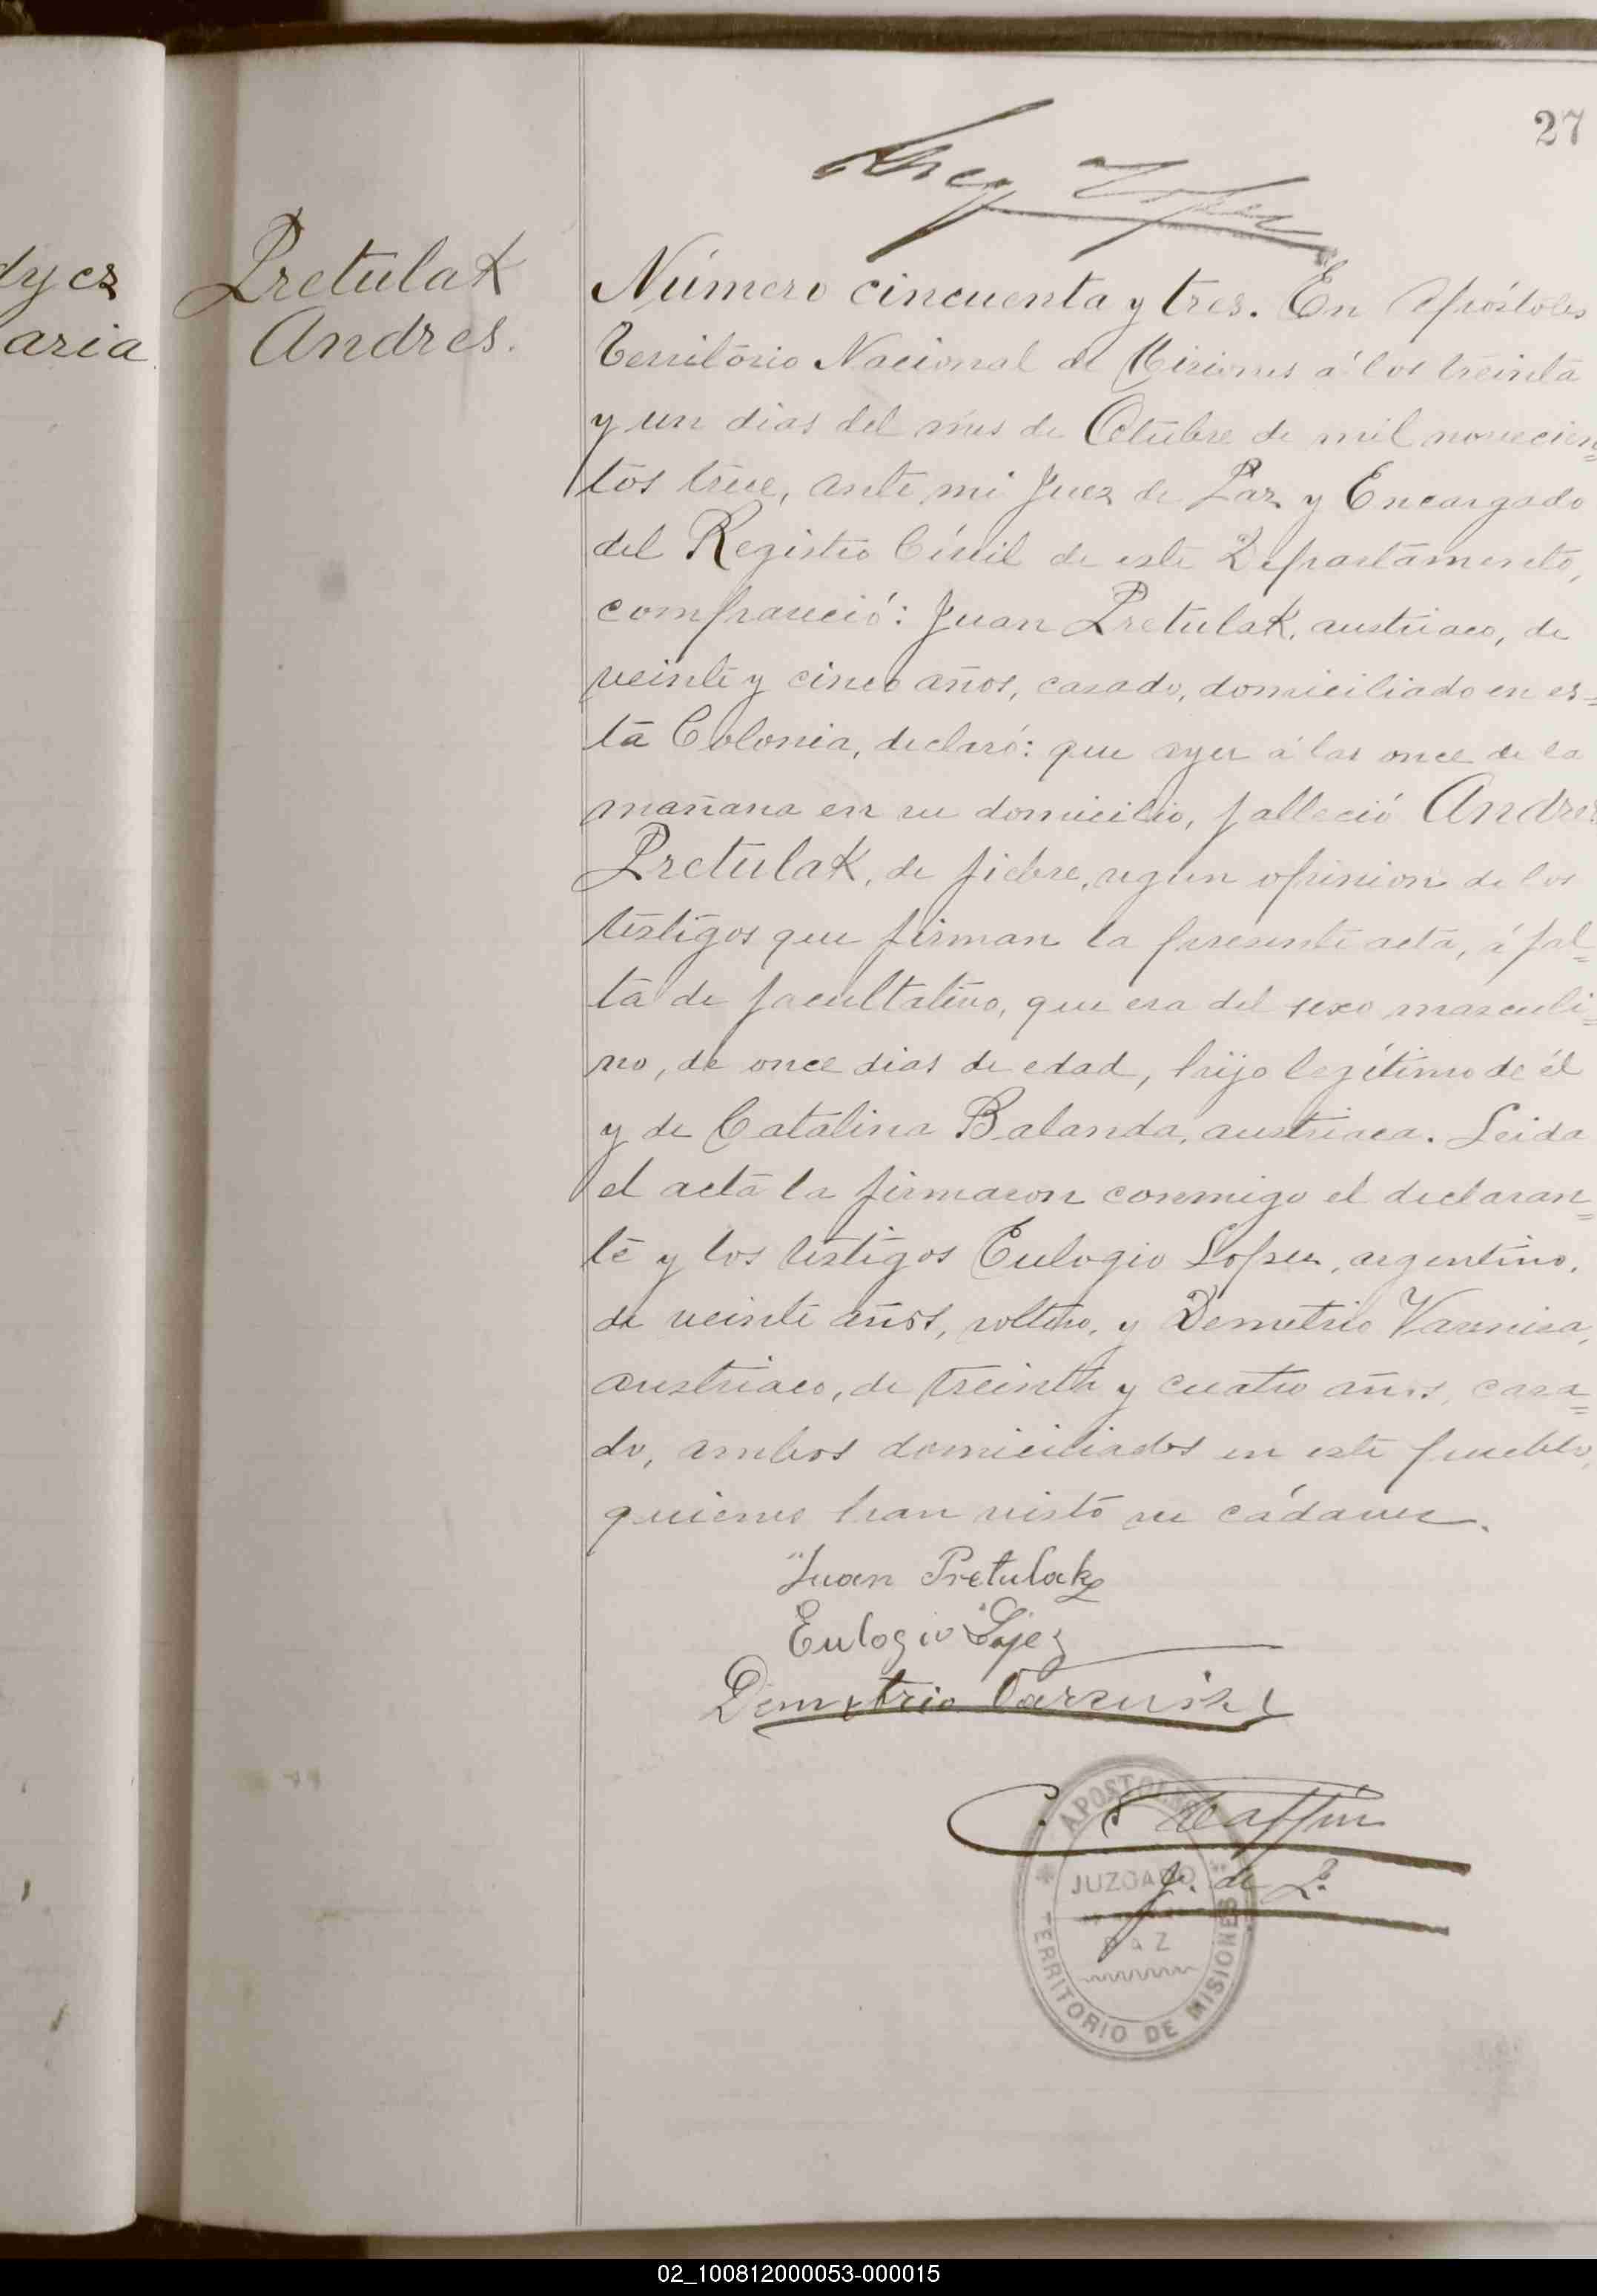 27
dyez
aria
Pretulak
Andres.
Número cincuenta y tres. En Apóstoles
Territorio Nacional de Misiones á los treinta
y un dias del mes de Octubre de mil novecien=
tos trece, ante mi Juez de Paz y Encargado
del Registro Civil de este Departamento,
compareció: Juan Pretulak, austriaco, de
veinte y cinco años, casado, domiciliado en es=
ta Colonia, declaró: que ayer á las once de la
mañana en su domicilio, falleció Andres
Pretulak, de fiebre, segun opinion de los
testigos que firman la presente acta, á fal=
ta de facultativo, que era del sexo masculi=
no, de once dias de edad, hijo legítimo de él
y de Catalina Balanda, austriaca. Leida
el acta la firmaron conmigo el declaran=
te y los testigos Eulogio Lopez, argentino,
de veinte años, soltero, y Demetrio
austriaco, de treinta y cuatro años, casa=
do, ambos domiciliados en este pueblo,
quienes han visto su cádaver.
Juan Pretulak
Eulogio Lopez
Demetrio
J. de P.
APOSTOLES
JUZGADO
PAZ
TERRITORIO DE MISIONES
02_100812000053-000015